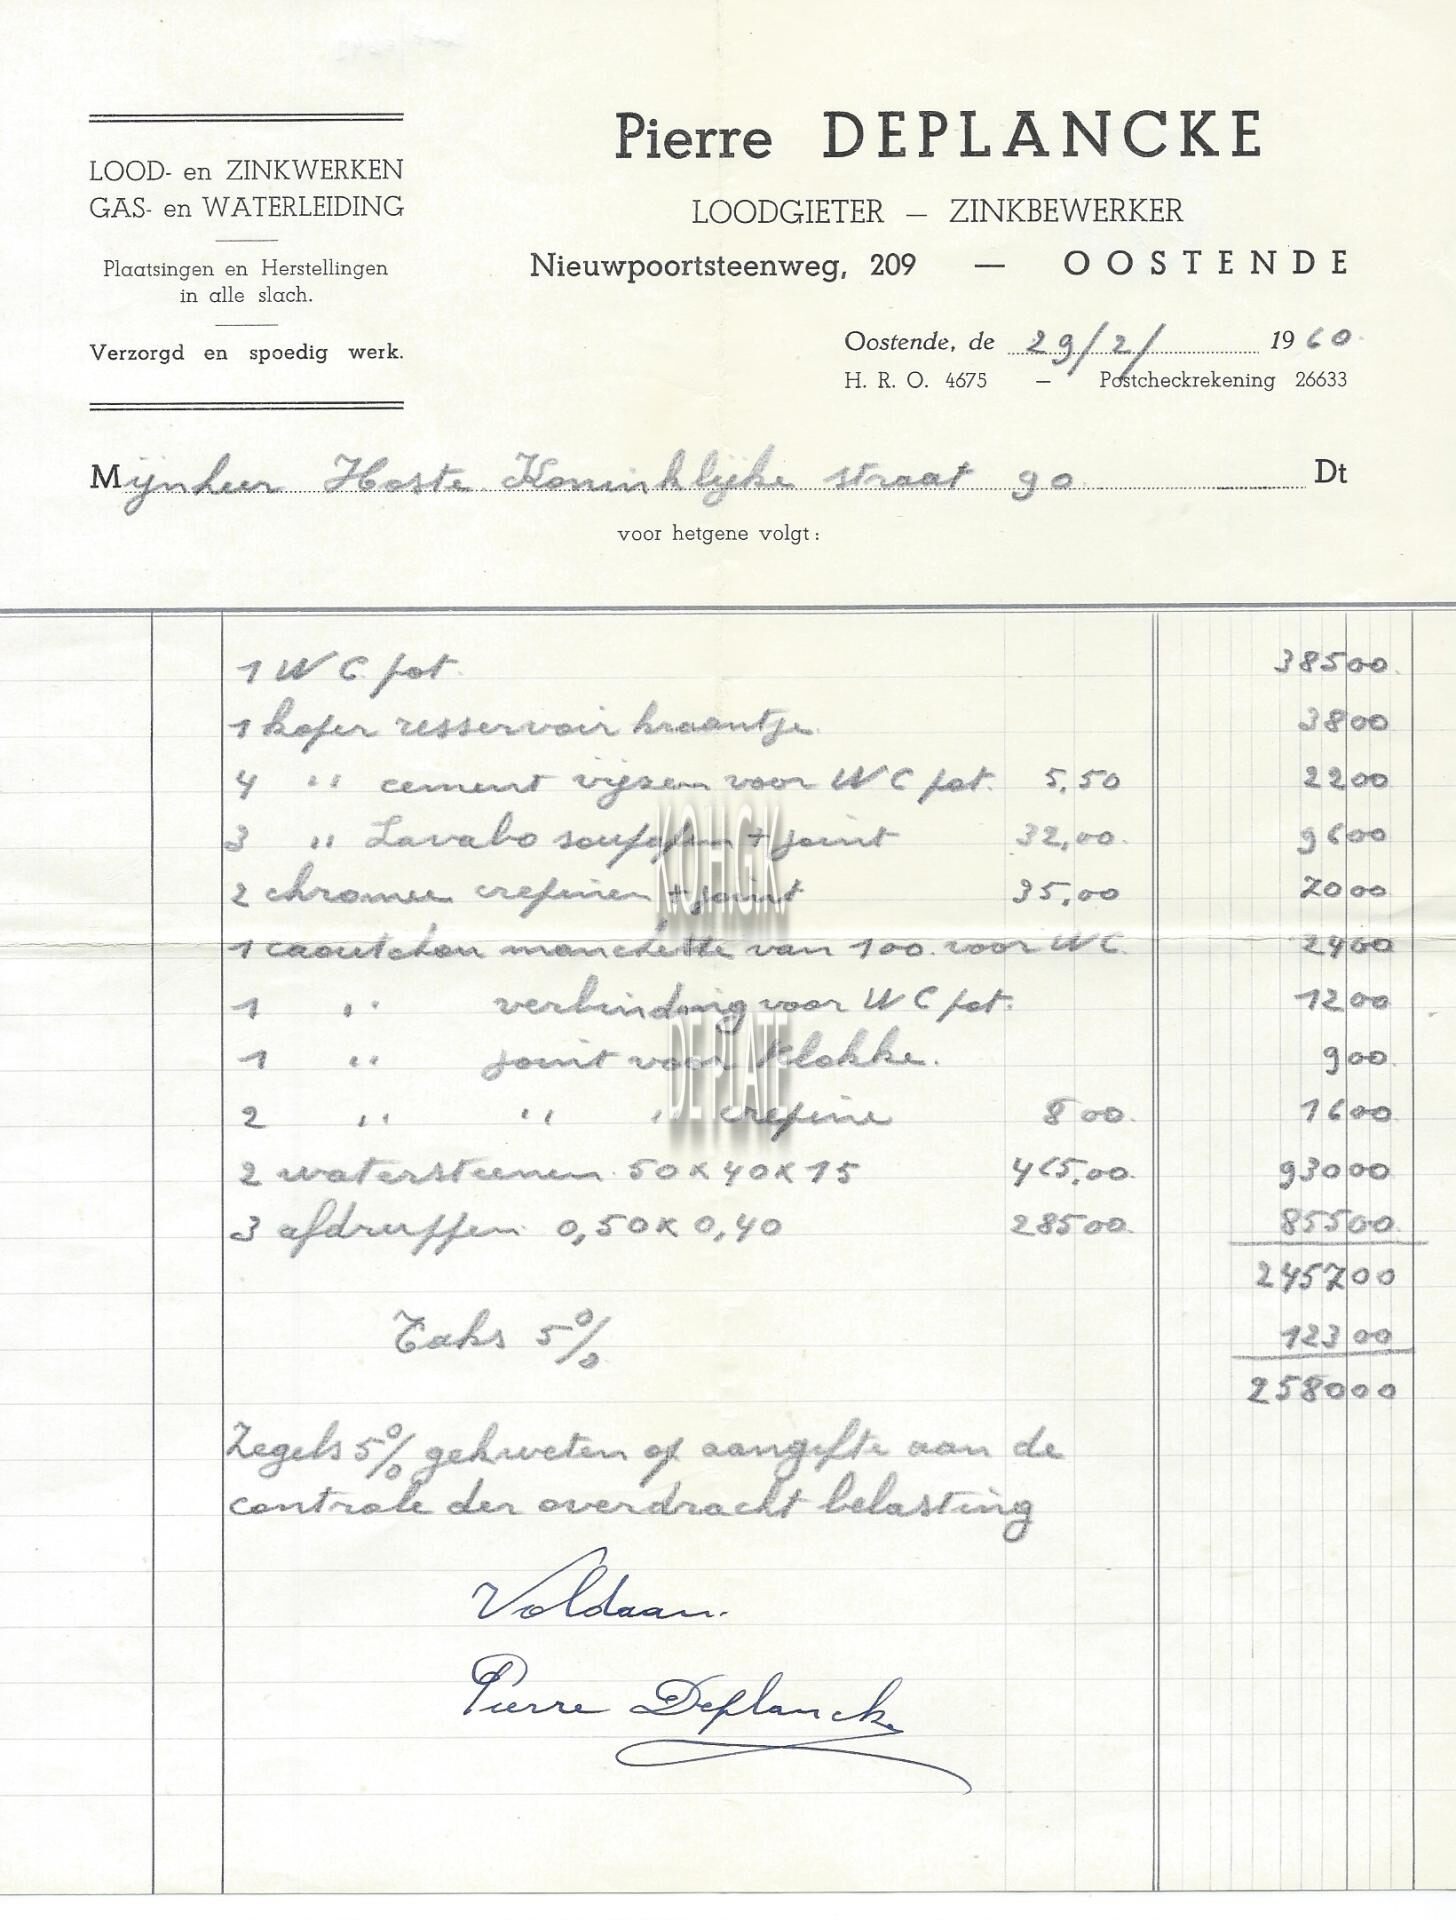 LOOD- en ZINKWERKEN
GAS- en WATERLEIDING
Plaatsingen en Herstellingen
in alle slach.
Verzorgd en spoedig werk.
Pierre DEPLANCKE
LOODGIETER — ZINKBEWERKER
Nieuwpoortsteenweg, 209 — OOSTENDE
Oostende, de 29/2/ 1960
H. R. O. 4675 — Postcheckrekening 26633
Mijnheer Hoste Koninklijke straat 90 Dt
voor hetgene volgt:
1 WC pot. 38500
1 koper resservoir kraantje 3800
4 '' cement vijzen voor WC pot. 5,50 2200
3 '' Lavabo + joint 32,00 9600
2 chromee crepinen + joint 35,00 7000
1 caoutchou manchette van 100 voor WC. 2400
1 '' verbinding voor WC pot. 1200
1 '' joint voor klokke. 900
2 '' '' '' crepine 800 1600
2 watersteenen 50x40x15 465,00 93000
3 afdruppen 0,50x0,40 28500 85500
245700
Taks 5% 12300
258000
Zegels 5% gekweten op aangifte aan de
controle der overdracht belasting
Voldaan.
Pierre Deplancke
KOHGK
DE PLATE